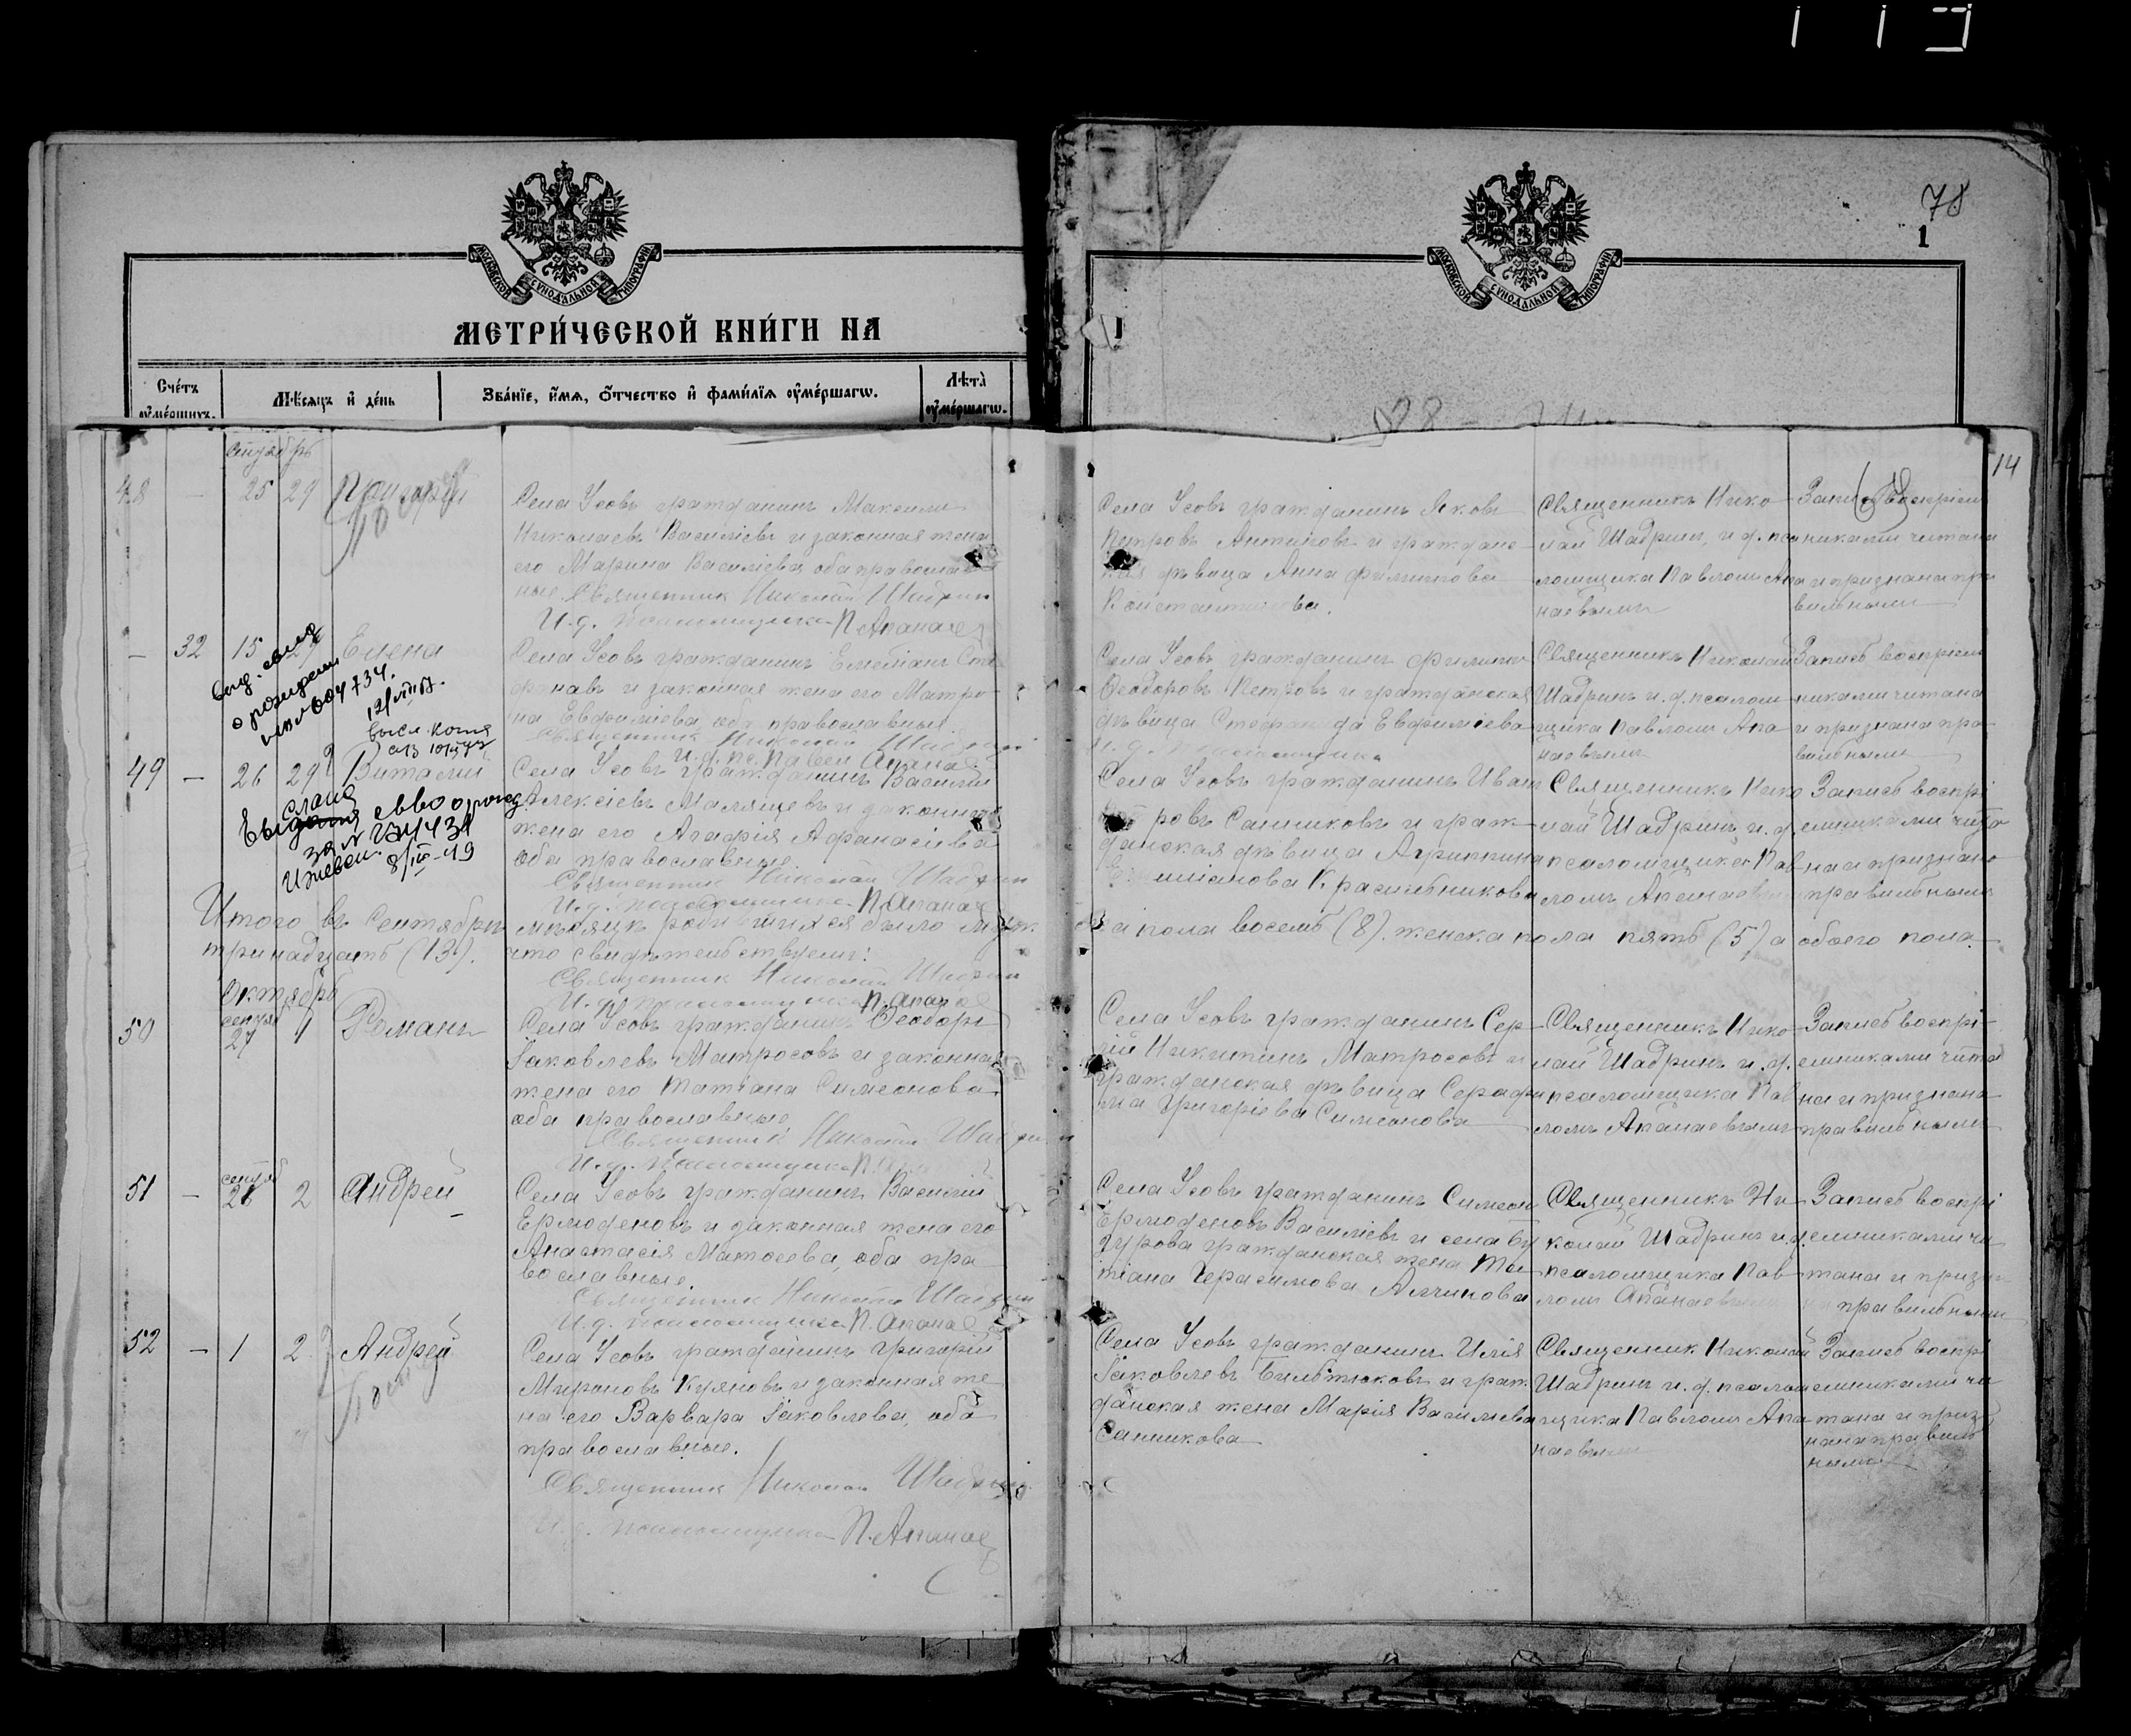 78
1
МОСКОВСКОЙ СѴНОДАЛЬНОЙ ТИПОГРАФІИ
МОСКОВСКОЙ СѴНОДАЛЬНОЙ ТИПОГРАФІИ
МЕТРИ́ЧЕСКОЙ КНИ́ГИ НА
Сче́тъ ᲂу҆ме́ршихъ.
Мѣ́сѧцъ и҆ де́нь
Зва́нїе, и҆́мѧ, ѻ҆́тчество и҆ фами́лїѧ ᲂу҆ме́ршагѡ.
Лѣта̀ ᲂу҆ме́ршагѡ.
14
48 - 25 29 Григорій
Села Усовъ гражданинъ Максимъ
Николаевъ Василіевъ и законная жена
его Марина Василіева оба православ
ные. Священник Николай Шадрин
И.д. псаломщика П. Апанаев
Села Усовъ гражданинъ Яковъ
Петровъ Антиповъ и граждан
дѣвица Анна Филиппова
Константинова.
Священникъ Нико
лай Шадринъ, и. д. пса
ломщика Павломъ Апа
наевымъ
Запись воспріем
никами читана
и признана пра
вильными
- 32 15 29 Елена
Села Усовъ гражданинъ Емеліанъ Сте
фановъ и законная жена его Матро
на Евфиміева оба православные
Священник Николай Шадрин
И.д. пс. Павел Апанаев
Села Усовъ гражданинъ Филиппъ
Феодоровъ Петровъ и гражданская
дѣвица Стефанида Евфиміева
И.д. псаломщика
Священникъ Николай
Шадринъ и. д. псалом
щика Павломъ Апа
наевымъ
Запись воспріем
никами читана
и признана пра
вильными
о рождении
высл. копия
49 - 26 29 Виталій
Села Усовъ гражданинъ Василій
Алексіевъ Малящевъ и законная
жена его Агафія Афанасіева
оба православные.
Священник Николай Шадрин
И.д. псаломщика П. Апанаев
Села Усовъ гражданинъ Иванъ
ровъ Санниковъ и граж
данская дѣвица Агриппина
Красильникова
Священникъ Нико
лай Шадринъ и. д.
псаломщика Пав
ломъ Апанаевымъ
Запись воспрі
емниками чита
на и признана
правильными
8/III-49
Итого въ Сентябрѣ мѣсяцѣ родившихся было муж
ска пола восемь (8). женска пола пять (5) а обоего пола
тринадцать (13). что свидѣтельствуемъ:
Священник Николай Шадрин
И.д. псаломщика П. Апанаев
Октябрь
50 сентяб 27 1 Романъ
Села Усовъ гражданинъ Феодоръ
Іаковлевъ Матросовъ и законная
жена его Татіана Симеонова
оба православные
Священник Николай Шадрин
И.д. псаломщика П. Апанаев
Села Усовъ гражданинъ Сер
гій Никитинъ Матросовъ и
гражданская дѣвица Серафи
ма Григоріева Симеонова
Священникъ Нико
лай Шадринъ и. д.
псаломщика Пав
ломъ Апанаевымъ
Запись воспрі
емниками чита
на и признана
правильными
51 - сентяб 26 2 Андрей
Села Усовъ гражданинъ Василій
Ермоденовъ и законная жена его
Анастасія Матѳеева, оба пра
вославные.
Священник Николай Шадрин
И.д. псаломщика П. Апанаев
Села Усовъ гражданинъ Симеонъ
Ермоденовъ Василіевъ и села Бу
гурова гражданская жена Та
тіана Герасимова Алчинова
Священникъ Ни
колай Шадринъ и.д.
псаломщика Пав
ломъ Апанаевымъ
Запись воспрі
емниками чи
тана и призна
на правильными
52 - 1 2 Андрей
Села Усовъ гражданинъ Григорій
Мироновъ Куяновъ и законная же
на его Варвара Іаковлева, оба
православные.
Священник Николай Шадрин
И.д. псаломщика П. Апанаев
Села Усовъ гражданинъ Илія
Іаковлевъ Бильтюковъ и граж
данская жена Марія Василіева
Санникова
Священник Николай
Шадринъ и. д. псалом
щика Павломъ Апа
наевымъ
Запись воспрі
емниками чи
тана и приз
нана правиль
ными